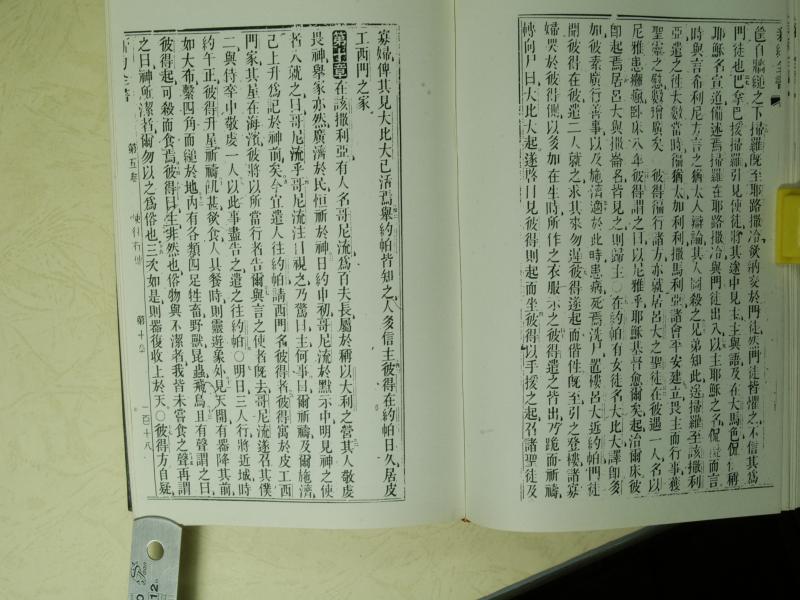 筐自牆縋之下掃羅旣至耶路撒冷欲納交於門徒然門徒皆懼之不信其爲
門徒也巴拿巴援掃羅引見使徒將其途中見主主與語及在大馬色侃侃稱
耶穌名宣道備述焉掃羅在耶路撒冷與門徒出入以主耶穌之名侃侃而言
時與言希利尼方言之猶太人辯論其人圖殺之兄弟知此送掃羅至該撒利
亞遣之徃大數當時徧猶太加利利撒馬利亞諸會平安建立畏主而行事獲
聖靈之慰數增廣矣○彼得徧行諸方亦就居呂大之聖徒在彼遇一人名以
尼雅患癱瘋臥床八年彼得謂之曰以尼雅乎耶穌基督愈爾矣起治爾床彼
卽起焉居呂大與撒崙者皆見之則歸主○在約帕有女徒名大比大譯卽多
加彼素廣行善事以及施濟適於此時患病死焉洗尸置樓呂大近約帕門徒
聞彼得在彼遣二人就之求其來勿遲彼得遂起而偕徃旣至引之登樓諸寡
婦哭於彼得側以多加在生時所作之衣服示之彼得遣之皆出乃跪而祈禱
轉向尸曰大比大起遂啓目見彼得則起而坐彼得以手援之起召諸聖徒及
寡婦俾其見大比大已活焉舉約帕皆知之人多信主彼得在約帕日久居皮
工西門之家
第十章在該撒利亞有人名哥尼流爲百夫長屬於稱以大利之營其人敬虔
畏神舉家亦然廣濟於民恒祈於神日約申初哥尼流於默示中明見神之使
者入就之曰哥尼流乎哥尼流注目視之乃驚曰主何事曰爾祈禱及爾施濟
已上升爲記於神前矣今宜遣人往約帕請西門名彼得者彼得寓於皮工西
門家其屋在海濱彼將以所當行者告爾與言之使者旣去哥尼流遂召其僕
二與侍卒中敬虔一人以此事盡告之遣之往約帕○明日三人行將近城時
約午正彼得升屋祈禱飢甚欲食人具餐時則靈遊象外見天開有器降其前
如大布繫四角而縋於地內有各類四足牲畜野獸昆蟲飛鳥且有聲謂之曰
彼得起可殺而食焉彼得曰主非然也俗物與不潔者我皆未嘗食之聲再謂
之曰神所潔者爾勿以之爲俗也三次如是則器復收上於天○彼得方自疑
第五卷
使徒行傳
第十章
一百十八